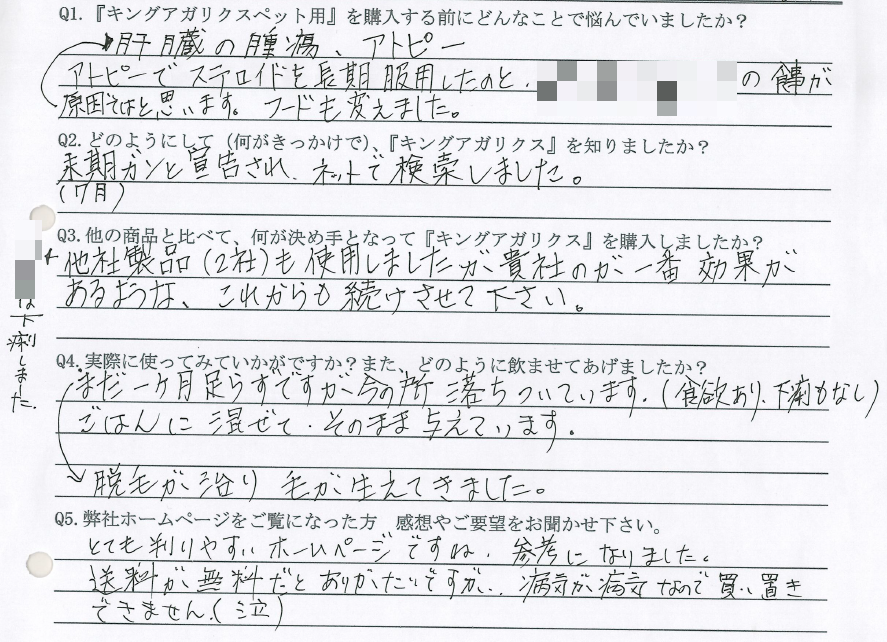 Q1.『キングアガリクスペット用』を購入する前にどんなことで悩んでいましたか？
肝臓の腫瘍、アトピー
アトピーでステロイドを長期服用したのと、の食事が
原因そはと思います。フードも変えました。
Q2.どのようにして（何がきっかけで）、『キングアガリクス』を知りましたか？
末期ガンと宣告され、ネットで検索しました。
(7月)
Q3.他の商品と比べて、何が決め手となって『キングアガリクス』を購入しましたか？
他社製品(2社)も使用しましたが貴社のが一番効果が
あるような、これからも続けさせて下さい。
は下痢しました。
Q4.実際に使ってみていかがですか？また、どのように飲ませてあげましたか？
まだ一ヶ月足らずですが今の所落ちついています。(食欲あり、下痢もなし)
ごはんに混ぜて・そのまま与えています。
脱毛が治り毛が生えてきました。
Q5.弊社ホームページをご覧になった方　感想やご要望をお聞かせ下さい。
とても判りやすいホームページですね。参考になりました。
送料が無料だとありがたいですが、病気が病気なので買い置き
できません。(泣)